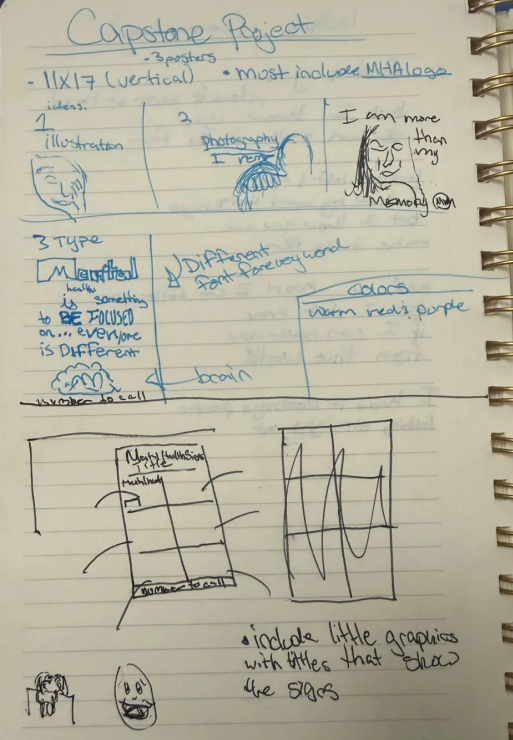 Capstone Project
-3 posters
- 11X17 (vertical)
• most include MHA logo
ideas:
1
illustration
2
photography
I am more
than
my
Memory
3 TYPE
Mental
health
is something
to BE FOCUSED
on... everyone
is Different
Different
font for every word
colors
warm reds, purple
brain
number to call
Title
number to call
• include little graphics
with titles that show
the signs